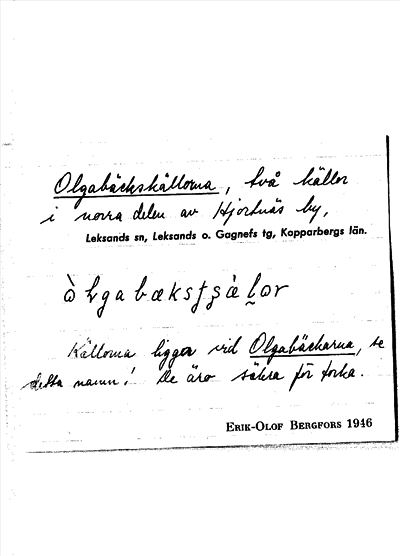 Olgabäckskällorna, två källor
i norra delen av Hjortnäs by,
Leksands sn, Leksands o. Gagnefs tg, Kopparbergs län.
Källorna ligga vid Olgabäckarna, se
detta namn! De äro säkra för torka.
ERIK-OLOF BERGFORS 1946